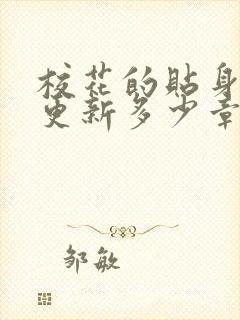 校花的贴身
更新多少章
邹敏